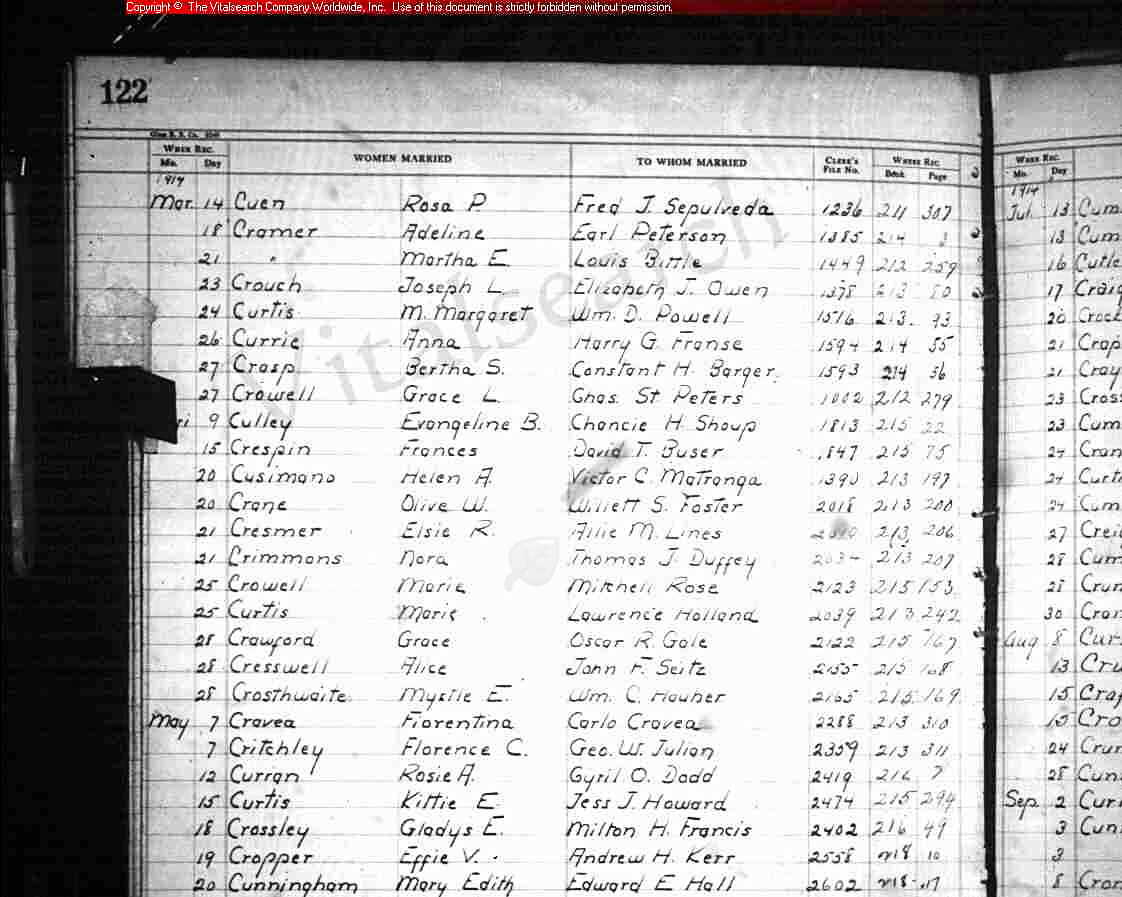 Copyright © The Vitalsearch Company Worldwide, Inc. Use of this document is strictly forbidden without permission.
122
WHEN REC. WOMEN MARRIED TO WHOM MARRIED CLERK'S FILE NO. WHERE REC. WHEN REC.
Mo. Day Book Page Mo. Day
1914 1914
Mar. 14 Cuen Rosa P. Fred J. Sepulveda 1236 211 307 Jul. 13 Cum
18 Cramer Adeline Earl Peterson 1385 214 3 13 Cum
21 " Martha E. Louis Bittle 1449 212 259 16 Cutle
23 Crouch Joseph L. Elizabeth J. Owen 1378 213 80 17 Craig
24 Curtis M. Margaret Wm. D. Powell 1516 213 93 20 Crock
26 Currie Anna Harry G. Franse 1594 214 55 21 Crap
27 Crasp Bertha S. Constant H. Barger 1593 214 56 21 Cray
27 Crowell Grace L. Chas. St Peters 1002 212 279 23 Cros
9 Culley Evangeline B. Chancie H. Shoup 1813 215 22 23 Cum
15 Crespin Frances David T. Buser 847 215 75 24 Cran
20 Cusimano Helen A. Victor C. Matranga 213 197 24 Curti
20 Crane Olive W. Willett S. Foster 2018 213 200 24 Cum
21 Cresmer Elsie R. Allie M. Lines 213 206 27 Crei
21 Crimmons Nora Thomas J. Duffey 2034 213 207 28 Cum
25 Crowell Marie Mitchell Rose 2123 215 153 28 Crun
25 Curtis Marie Lawrence Holland 2039 213 242 30 Cran
28 Crawford Grace Oscar R. Gale 2122 215 167 Aug 8 Cur
28 Cresswell Alice John F. Seitz 2155 215 168 13 Cru
28 Crosthwaite Myrtle E. Wm. C. Hauher 2165 215 169 15 Craf
May 7 Cravea Fiorentina Carlo Cravea 2288 213 310 15 Cro
7 Critchley Florence C. Geo. W. Julian 2359 213 311 24 Crur
12 Curran Rosie A. Gyril O. Dodd 2419 216 7 28 Cun
15 Curtis Kittie E. Jess J. Howard 2474 215 294 Sep. 2 Cur
18 Crossley Gladys E. Milton H. Francis 2402 216 49 3 Cun
19 Cropper Effie V. Andrew H. Kerr 2558 m18 10 3
20 Cunningham Mary Edith Edward E Hall 2602 m18 17 8 Cran
Vitalsearch